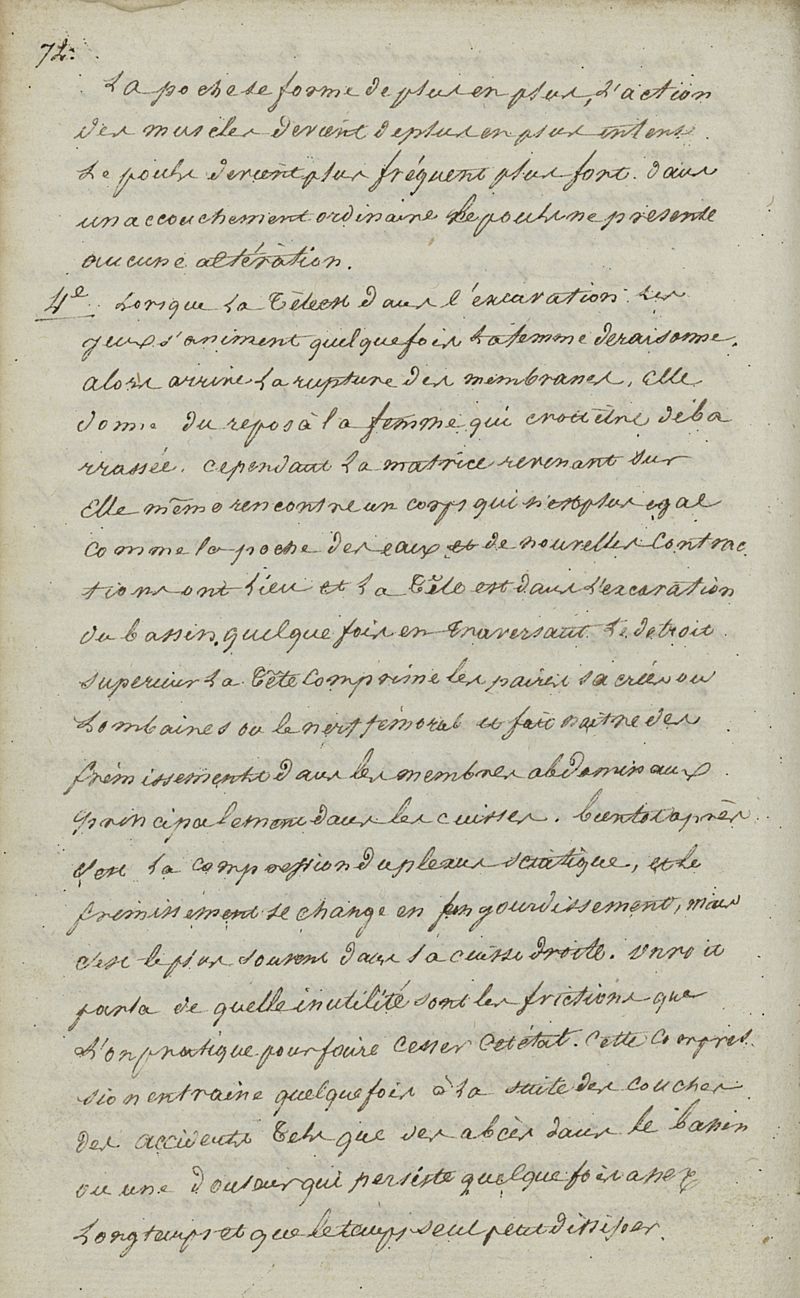 72.
La poche se forme de plus en plus, L'action
des muscles devient de plus en plus intense
Le pouls devient plus fréquent plus fort. dans
un accouchement ordinaire le pouls ne présente
aucune altération.
4e Lorsque La Tête est dans l'excavation Les
yeux s'animent quelquefois La femme déraisonne.
alors arrive La rupture des membranes, Elle
donne du repos à la femme qui croit être déba
rrassée. cependant La matrice revenant sur
Elle même rencontre un corps qui n'est plus egal
comme la poche des eaux et de nouvelles contrac
tions ont Lieu et La Tête est dans L'excavation
du bassin, quelque fois en traversant Le détroit
superieur La Tête comprime les paires sacrées ou
Lombaires ou le nerf fémoral et fait naitre des
frémissements dans les membres abdominaux
principalement dans les cuisses. bientot après
c'est La compression du plexus sciatique, et le
fremissement se change en engourdissement, mais
c'est le plus souvent dans La cuisse droite. on voit
parla de quelle inutilité sont les frictions que
L'on pratique pour faire cesser cet état. cette compres
sion entraine quelquefois à La suite des couches
des accidents Tels que des abcès dans le bassin
ou une douleur qui persiste quelque fois assez
Longtemps et que le temps seul peut dissiper.